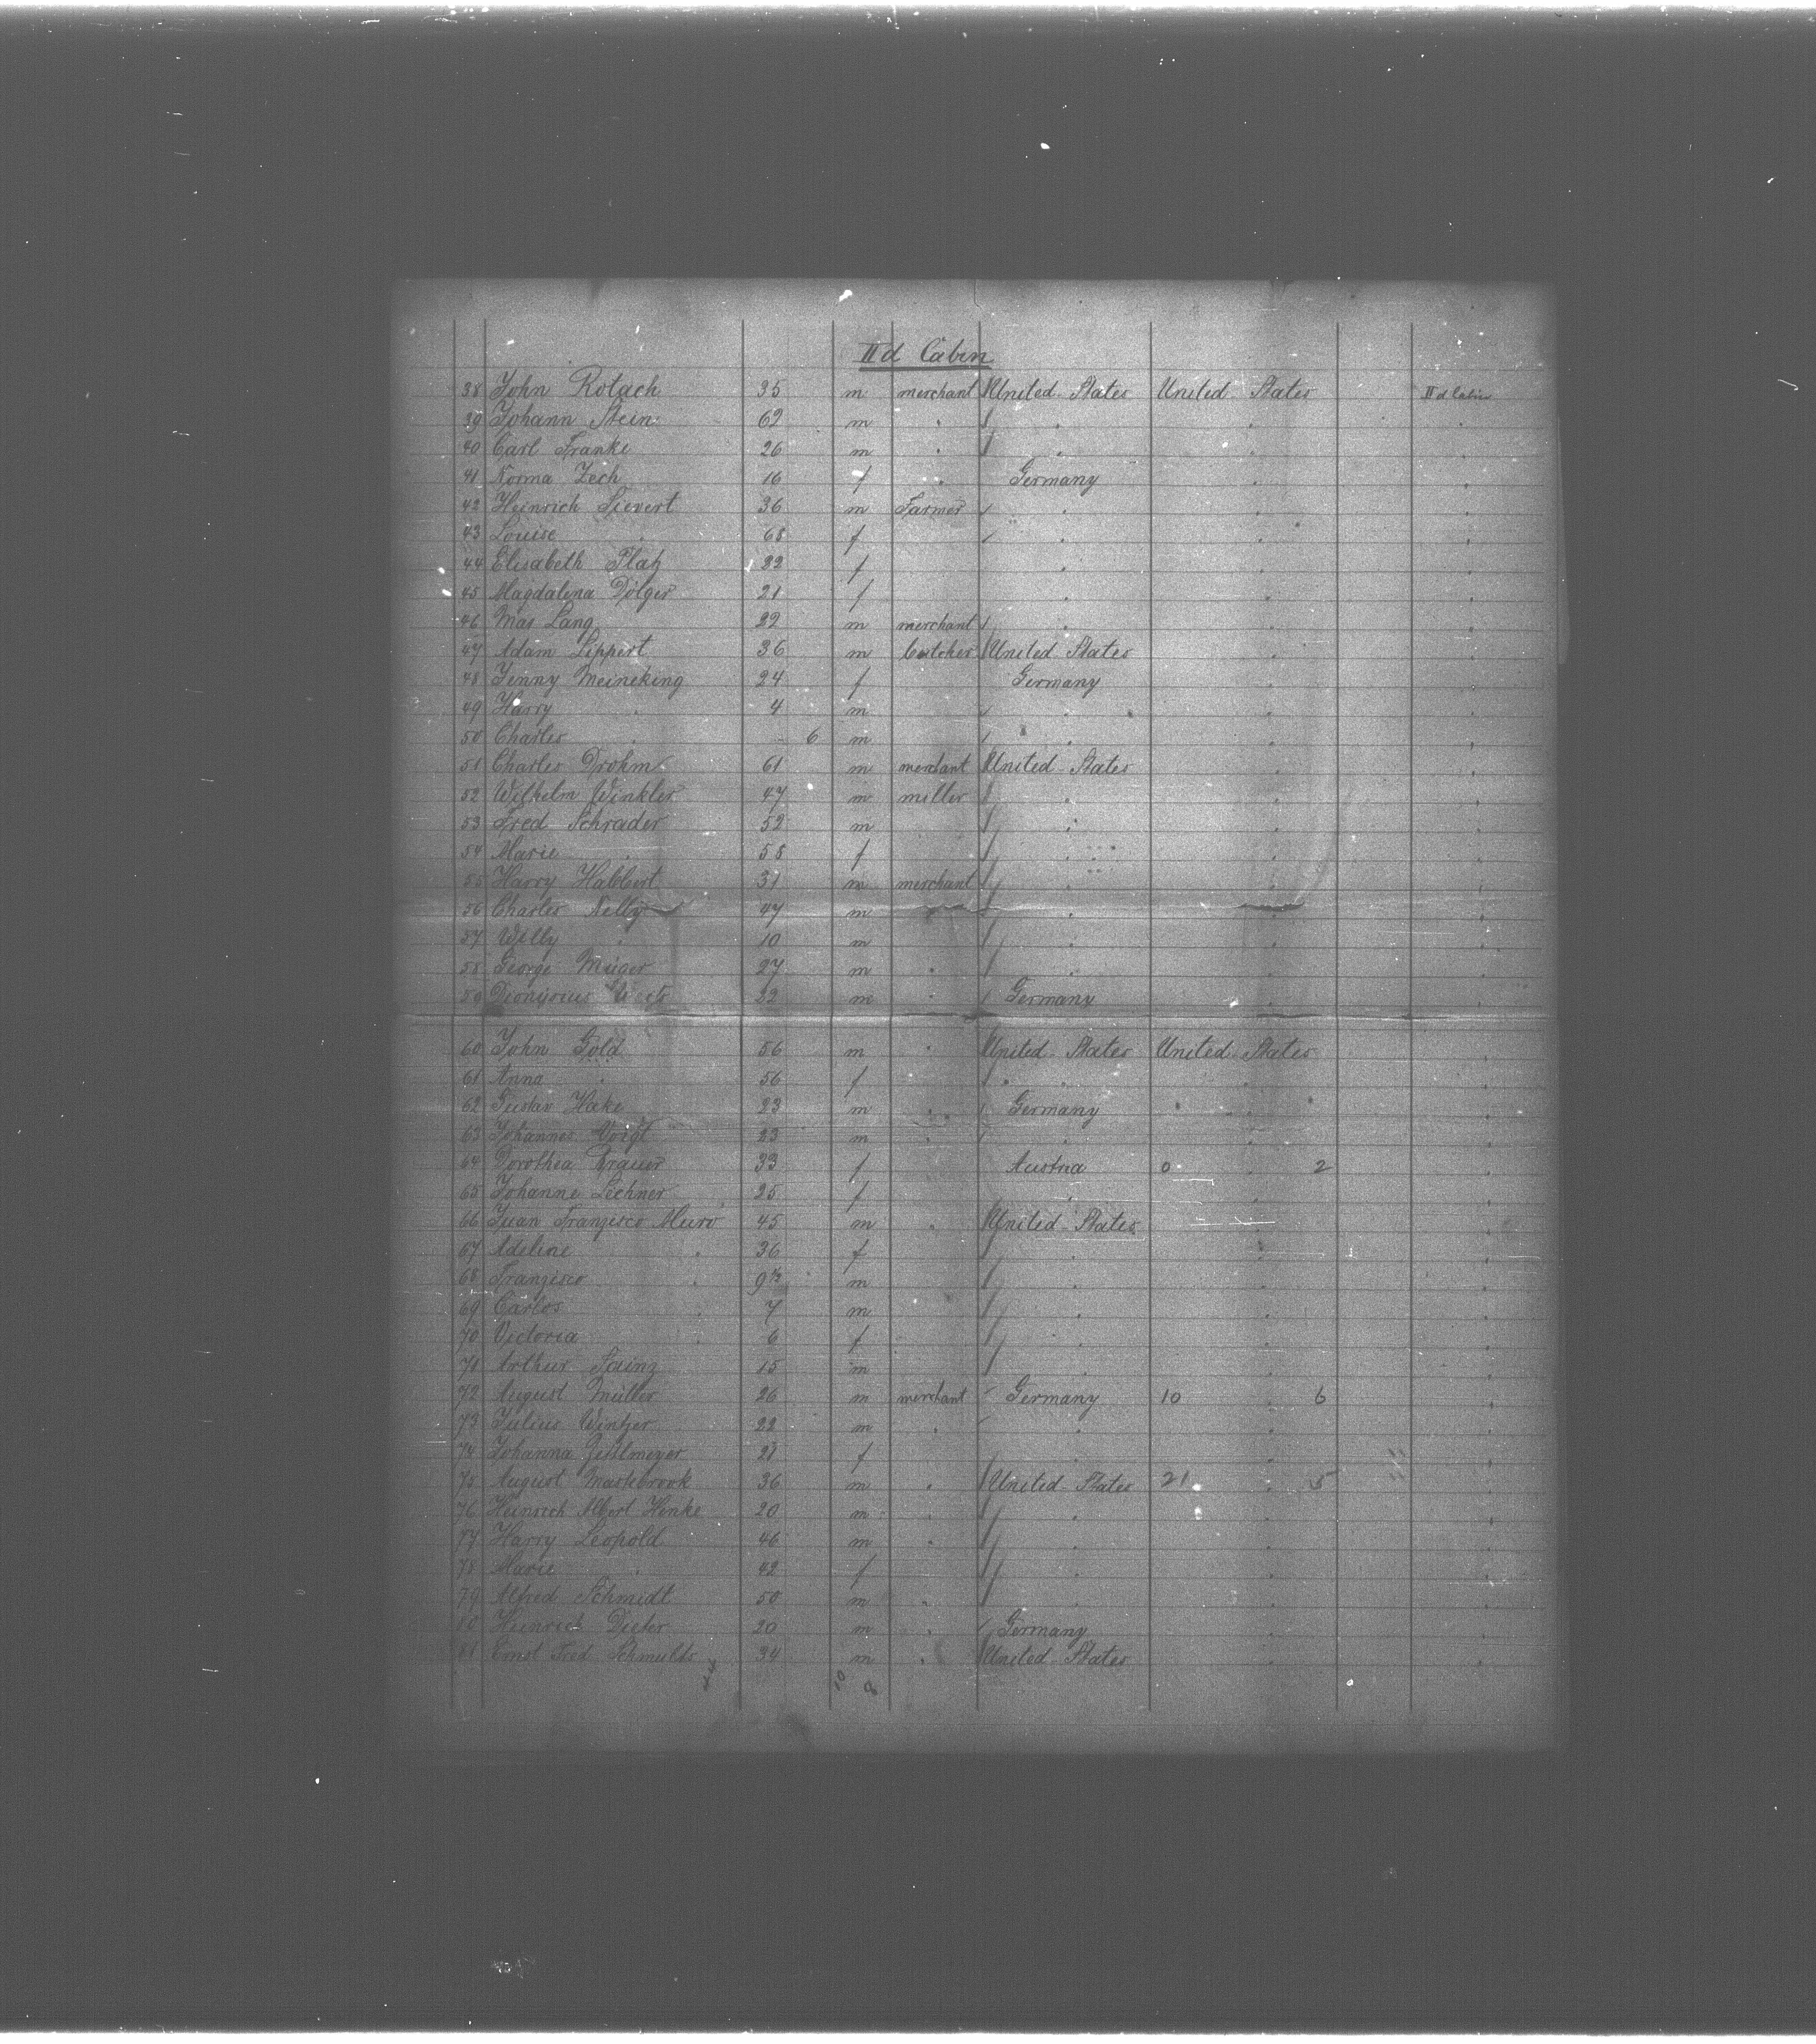 IId Cabin
38 John Rotach 35 m merchant United States United States IId Cabin
39 Johann Stein 62 m " " " "
40 Carl Franke 26 m " " " "
41 Norma Zech 16 f " Germany " "
42 Heinrich Sievert 36 m Farmer " " "
43 Louise " 68 f " " "
44 Elisabeth Platz 22 f " " "
45 Magdalena Dölger 21 f " " "
46 Max Lang 22 m merchant " " "
47 Adam Lippert 36 m butcher United States " "
48 Jenny Meineking 24 f Germany " "
49 Harry " 4 m " " "
50 Charles " - 6 m " " "
51 Charles Drohm 61 m merchant United States " "
52 Wilhelm Winkler 47 m miller " " "
53 Fred Schrader 52 m " " "
54 Marie " 58 f " " "
55 Harry Habbert 31 m merchant " " "
56 Charles Nelly 47 m " " " "
57 Willy " 10 m " " "
58 George Meiger 27 m " " " "
59 Dionysius 22 m " Germany " "
60 John Gold 56 m " United States United States "
61 Anna " 56 f " " "
62 Gustav Hake 23 m " Germany " "
63 Johannes Voigt 23 m " " " "
64 Dorothea 33 f Austria 0 " 2 "
65 Johanne Lechner 25 f " " "
66 Juan Franzisco Muro 45 m " United States " "
67 Adeline " 36 f " " "
68 Franzisco " 9½ m " " "
69 Carlos " 7 m " " "
70 Victoria " 6 f " " "
71 Arthur Sainz 15 m " " "
72 August Müller 26 m merchant Germany 10 " 6 "
73 Julius Wintzer 22 m " " " "
74 Johanna 21 f " " "
75 August Maskbrook 36 m " United States 21 " 5 "
76 Heinrich Albert Henke 20 m " " " "
77 Harry Leopold 46 m " " " "
78 Marie " 42 f " " "
79 Alfred Schmidt 50 m " " " "
80 Heinrich Dieter 20 m " Germany " "
81 Ernst Fred Schmults 34 m " United States " "
44 10 8